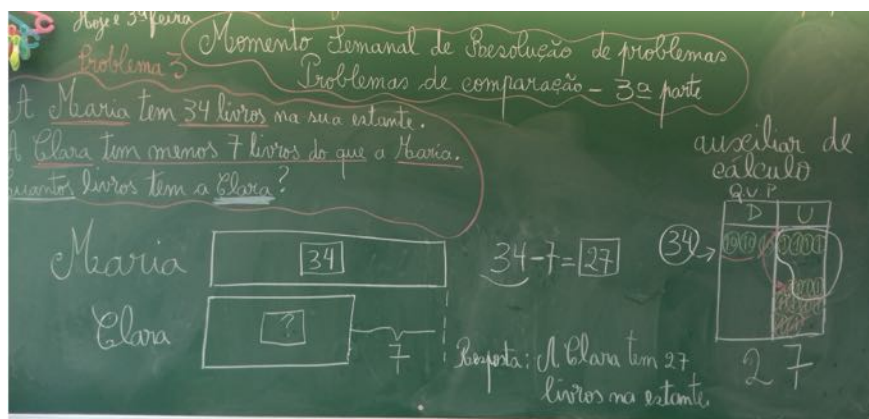 Hoje é 3ª feira
Momento Semanal de Resolução de problemas
Problemas de comparação - 3ª parte
Problema 3
A Maria tem 34 livros na sua estante.
A Clara tem menos 7 livros do que a Maria.
Quantos livros tem a Clara?
Maria
34
Clara
?
7
34-7=27
Resposta: A Clara tem 27
livros na estante.
auxiliar de
cálculo
Q.V.P
D U
34
2 7